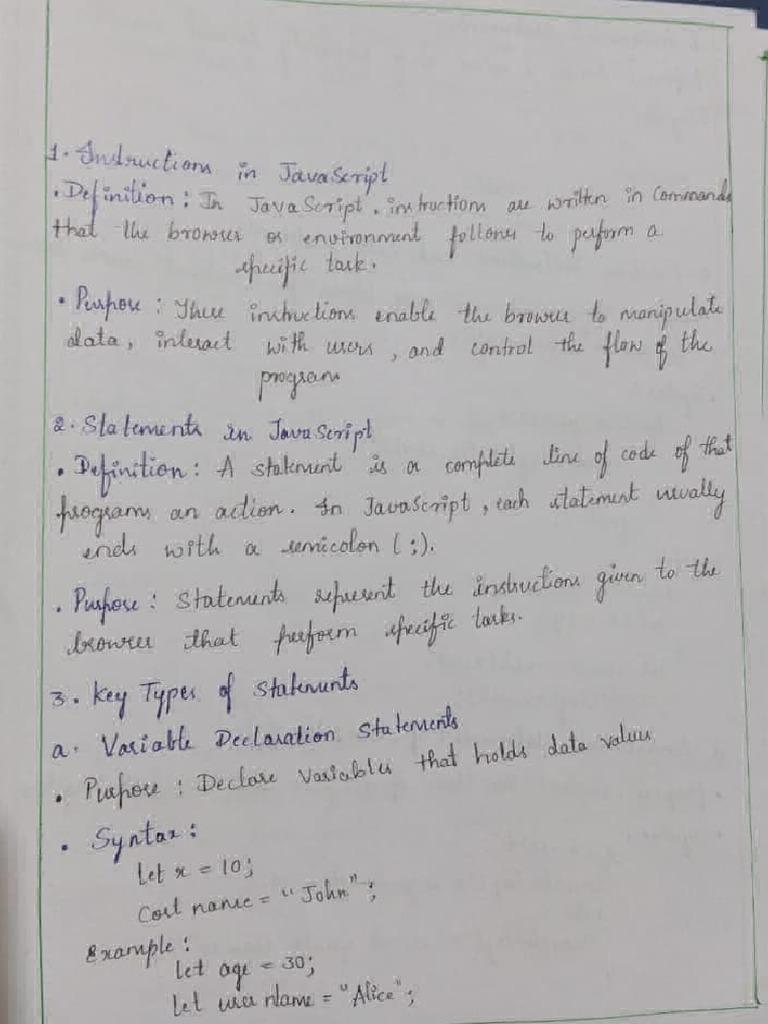 1. Instructions in JavaScript
• Definition : In JavaScript . instructions are written in Commands
that the browser or environment follows to perform a
specific task.
• Purpose : These instructions enable the browser to manipulate
data, interact with users, and control the flow of the
program
2. Statements in JavaScript
• Definition : A statement is a complete line of code of that
programs an action. In JavaScript, each statement usually
ends with a semicolon (;).
• Purpose : Statements represent the instructions given to the
browser that perform specific tasks.
3. Key Types of Statements
a. Variable Declaration Statements
• Purpose : Declare Variables that holds data values
• Syntax :
Let x = 10;
Cost name = "John";
Example :
Let age = 30;
Let user Name = "Alice";